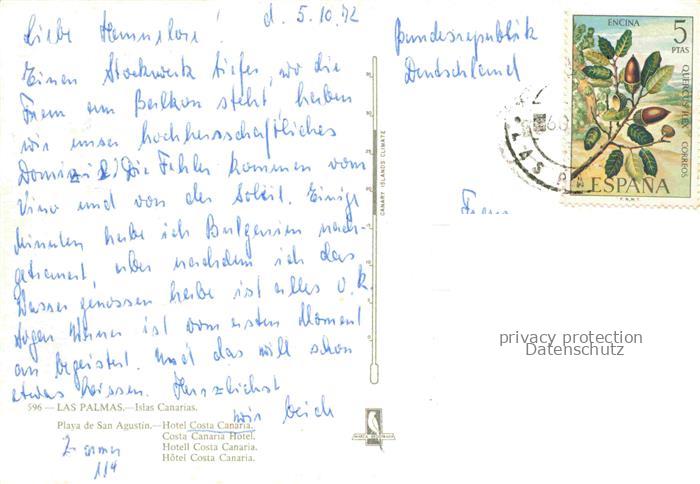 d. 5.10.72
Liebe Hannelore!
Einen Stockwerk tiefer, wo die
Frau am Balkon steht haben
wir unser hochherrschaftliches
Domizil! Die Fehler kommen vom
Vino und von der Soleil. Einige
Minuten habe ich Bulgarien nach-
getrauert, aber nachdem ich das
Wasser genossen habe ist alles o.k.
Hagen Werner ist vom ersten Moment
an begeistert. Und das will schon
etwas heissen. Herzlichst
wir beich
596 — LAS PALMAS.—Islas Canarias.
Playa de San Agustín.—Hotel Costa Canaria.
Costa Canaria Hotel.
Hotell Costa Canaria.
Hôtel Costa Canaria.
Zimmer
114
CANARY ISLANDS CLIMATE
Bundesrepublik
Deutschland
Frau
ENCINA
5
PTAS
QUERCUS ILEX
CORREOS
ESPAÑA
F.N.M.T.
LAS PA
privacy protection
Datenschutz